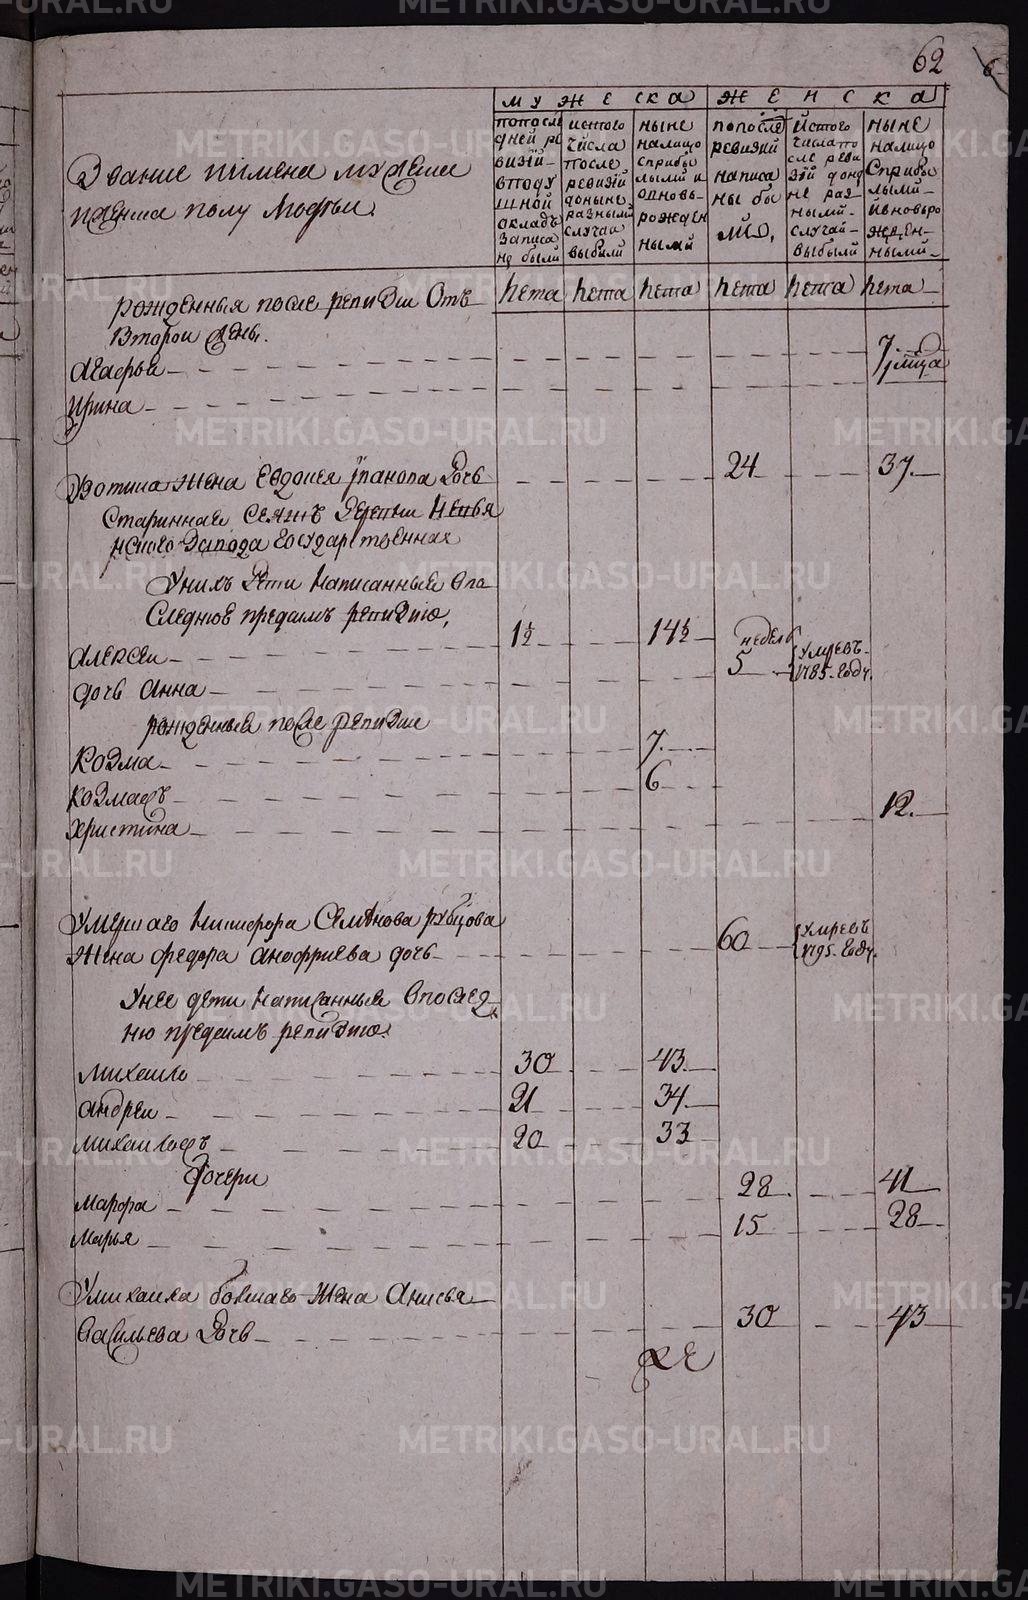 62
МУЖЕСКА ЖЕНСКА
Звание и имена мужеска
и женска полу людъи.
попосле
дней ре
визiй
вподу
шной
окладъ
записа
не были
изтого
числа
после
ревизiй
доныне
разными
случаи
выбыли
ныне
налицо
сприбы
лыми и
вновь
рожден
ными
попосле
ревизий
написа
ны бы
ли.
Изтого
числа по
сле реви
зiй доны
не раз
ными
случай
выбыли
ныне
налицо
Сприбы
лыми
и вновьро
жден
ными
рожденныя после ревизiи Отъ
лета лета лета лета лета лета
Второй жены.
Агафья 7
Ирина 1/2 года
Уфотина жена Евдокея Иванова дочь 24 37
Стариннае взятъ деревни Невья
нского завода государственнае
Унихъ дети написанныя впо
Следнюю предъимъ ревизию,
Алексеи 1½ 14½
дочь Анна недель 5 Умре въ 1785 годе.
рожденныя после ревизiи
Козма 7
Козма ж 6
Христина 12
Умершаго Никифора Семенова рубцова
жена федора анофриева дочь 60 Умре въ 1795 годе.
Унее дети написанныя впослед
ню предъимъ ревизию.
Михаило 30 43
андреи 21 34
михаило жъ 20 33
Дочери
Марфа 28 41
Марья 15 28
Умихаила болшаго жена Анисья
васильева дочь 30 43